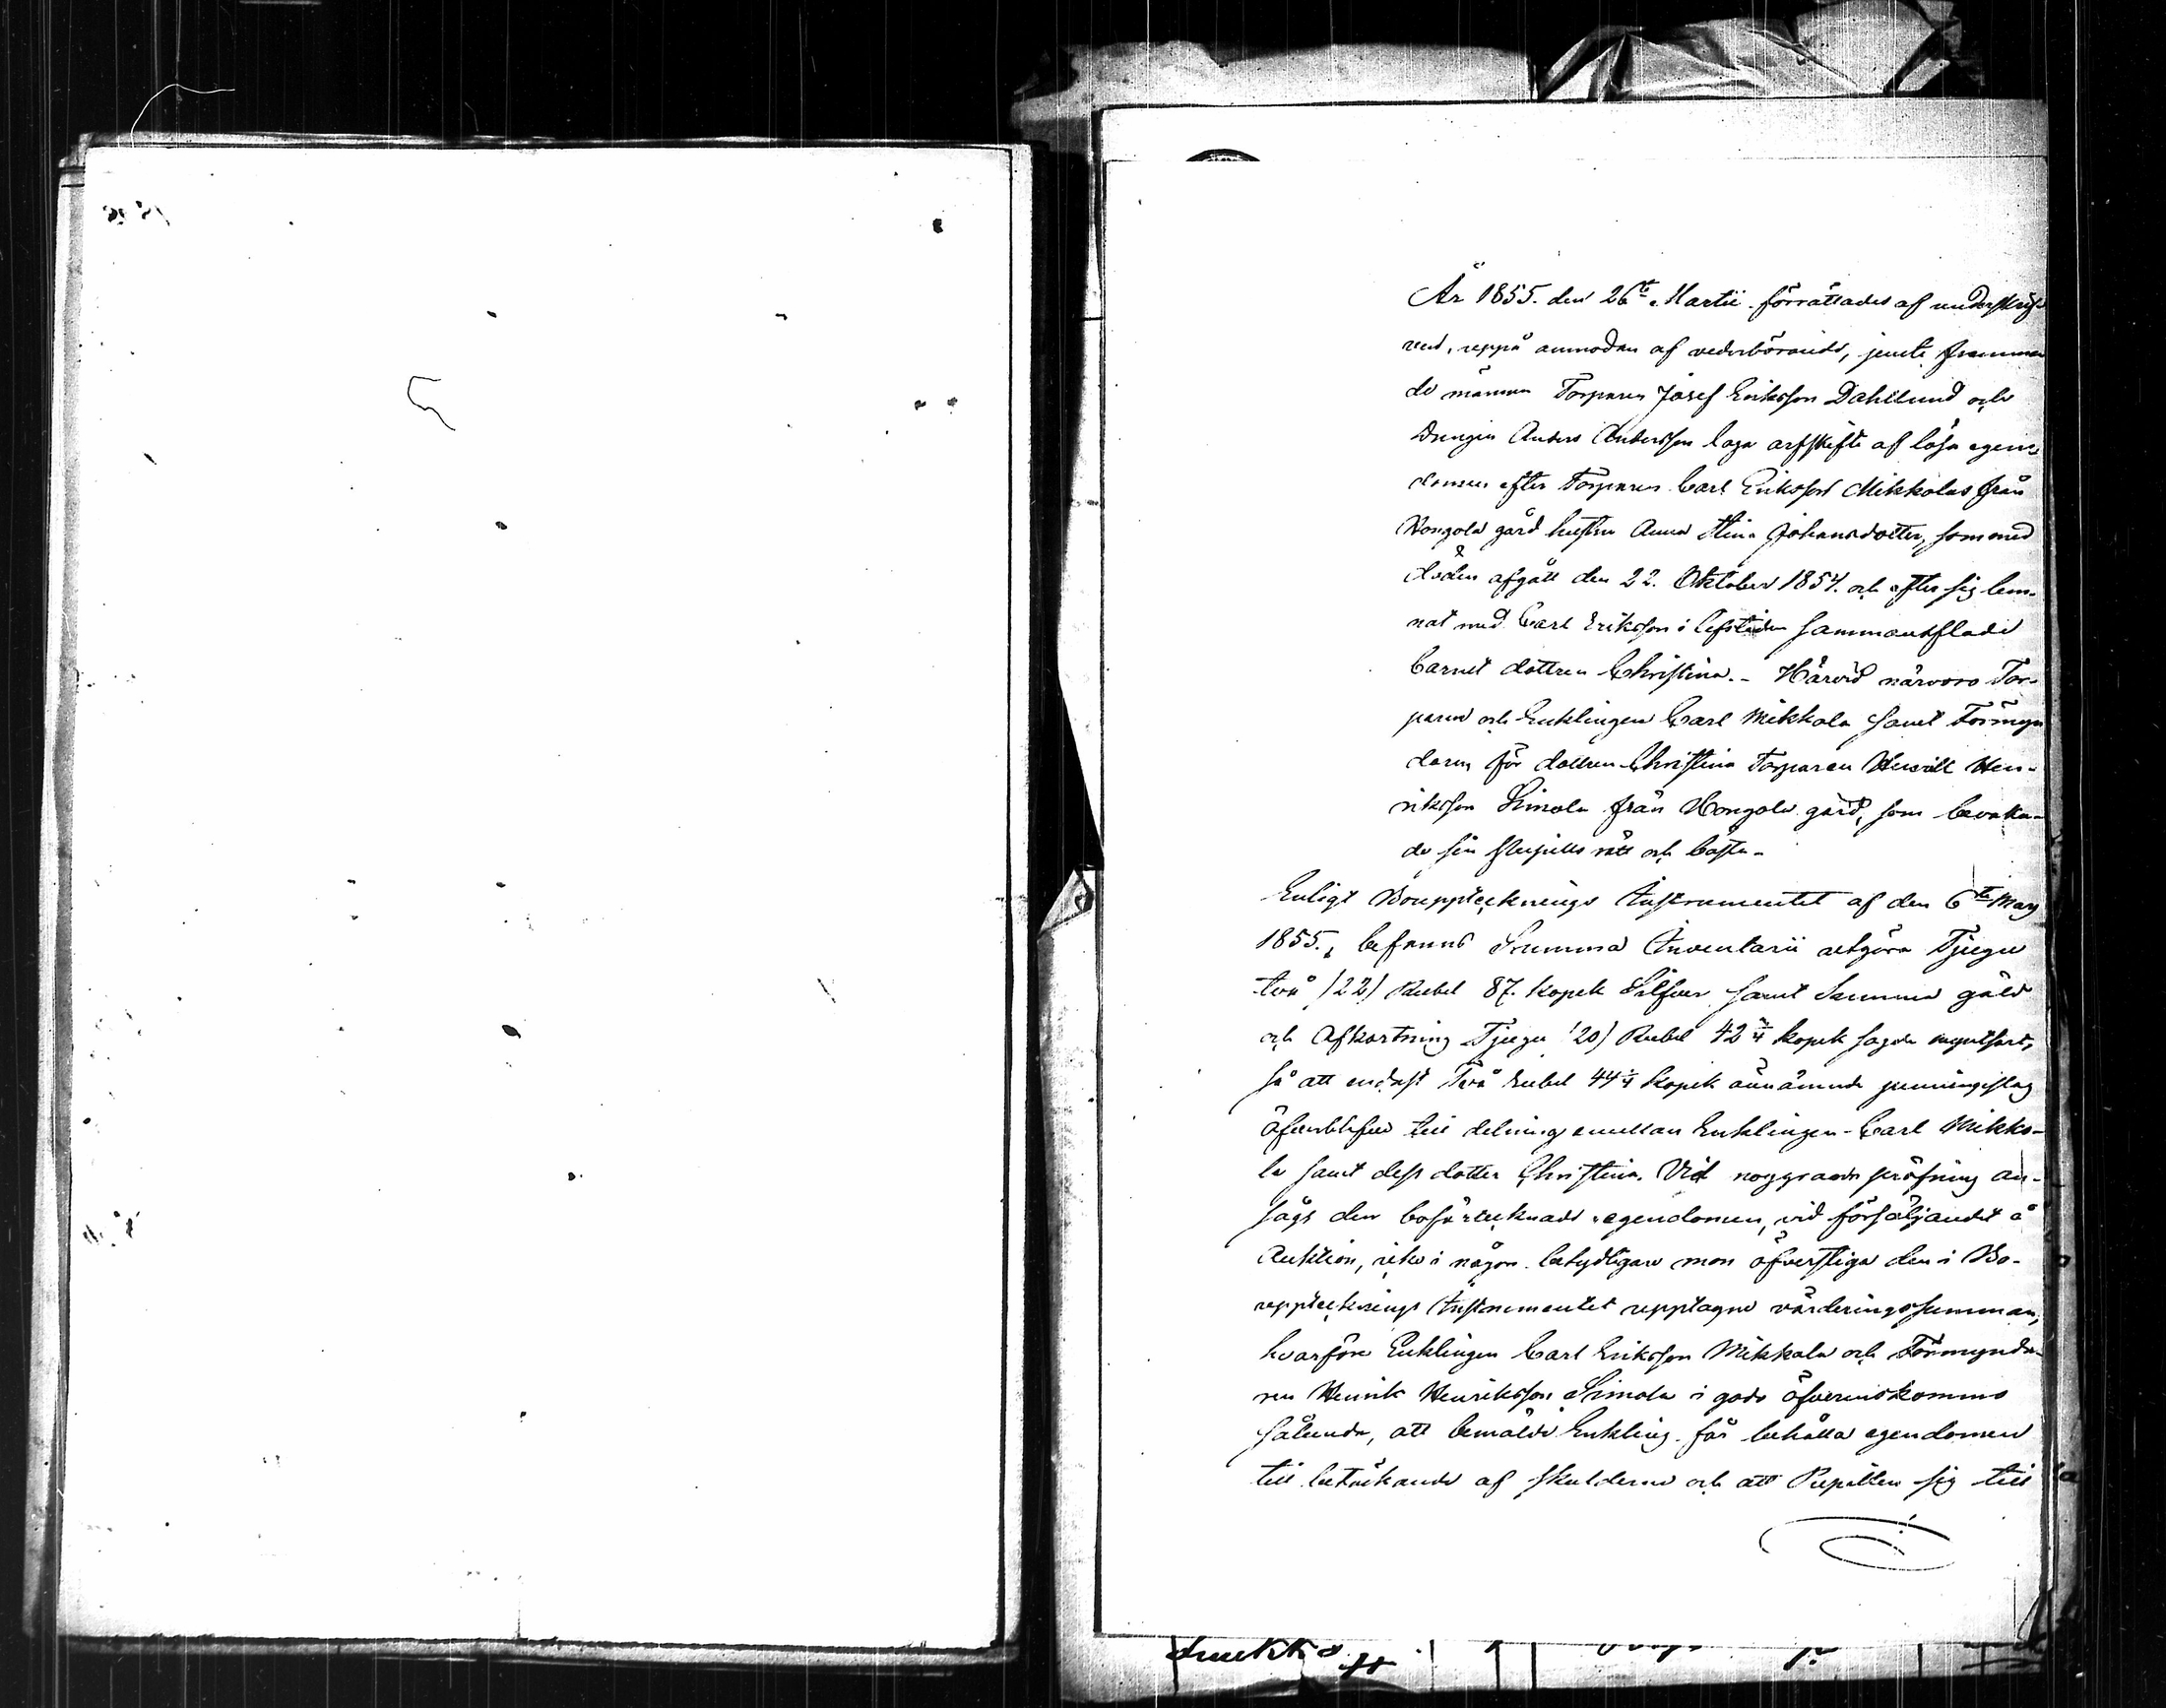 År 1855. den 26te Martii förrättades af underskrif
ved, uppå anmodan af vederbörande, jemte
de männen Torparen Josef Eriksson Dahllund och
Drengen Anders Andersson laga arfskifte af lösa egen-
domen efter Torparen Carl Eriksson Mikkolas från
Wongola gård hustru Anna Stina Johansdotter, som med
döden afgått den 22. Oktober 1854. och efter sig lem-
nat med Carl Eriksson i lifstiden sammanaflade
barnet dottren Christina. - Härvid närvoro Tor-
paren och Enklingen Carl Mikkola samt Förmyn
daren för dottren Christina Torparen Henrik Hen-
riksson Simola från Wongola gård, som bevaka-
de sin Pupills rätt och bästa -
Enligt Bouppteknings Instrumentet af den 6te Mars
1855., befanns Summa Inventarii utgöra Tjugu
två /22/ Rubel 87. kopek Silfver samt Summa gäld
och Afkortning Tjugu /20/ Rubel 42 kopek sagde myntsort,
så att endast Två Rubel 44 kopek penningeslag
öfverblefve till delning emellan Enklingen Carl Mikko-
la samt dess dotter Christina. Vid noggrann pröfning an-
sågs den egendomen, vid försäljandet å
Auktion, icke i någon betydligare mon öfverstiga den i Bo-
uppteknings Instrumentet upptagne värderingssumman,
hvarföre Enklingen Carl Eriksson Mikkola och Förmynda-
ren Henrik Henriksson Simola i godo öfverenskommo
sålunda, att bemälde Enkling får behålla egendomen
till betäckande af skulderne och att Pupillen sig till